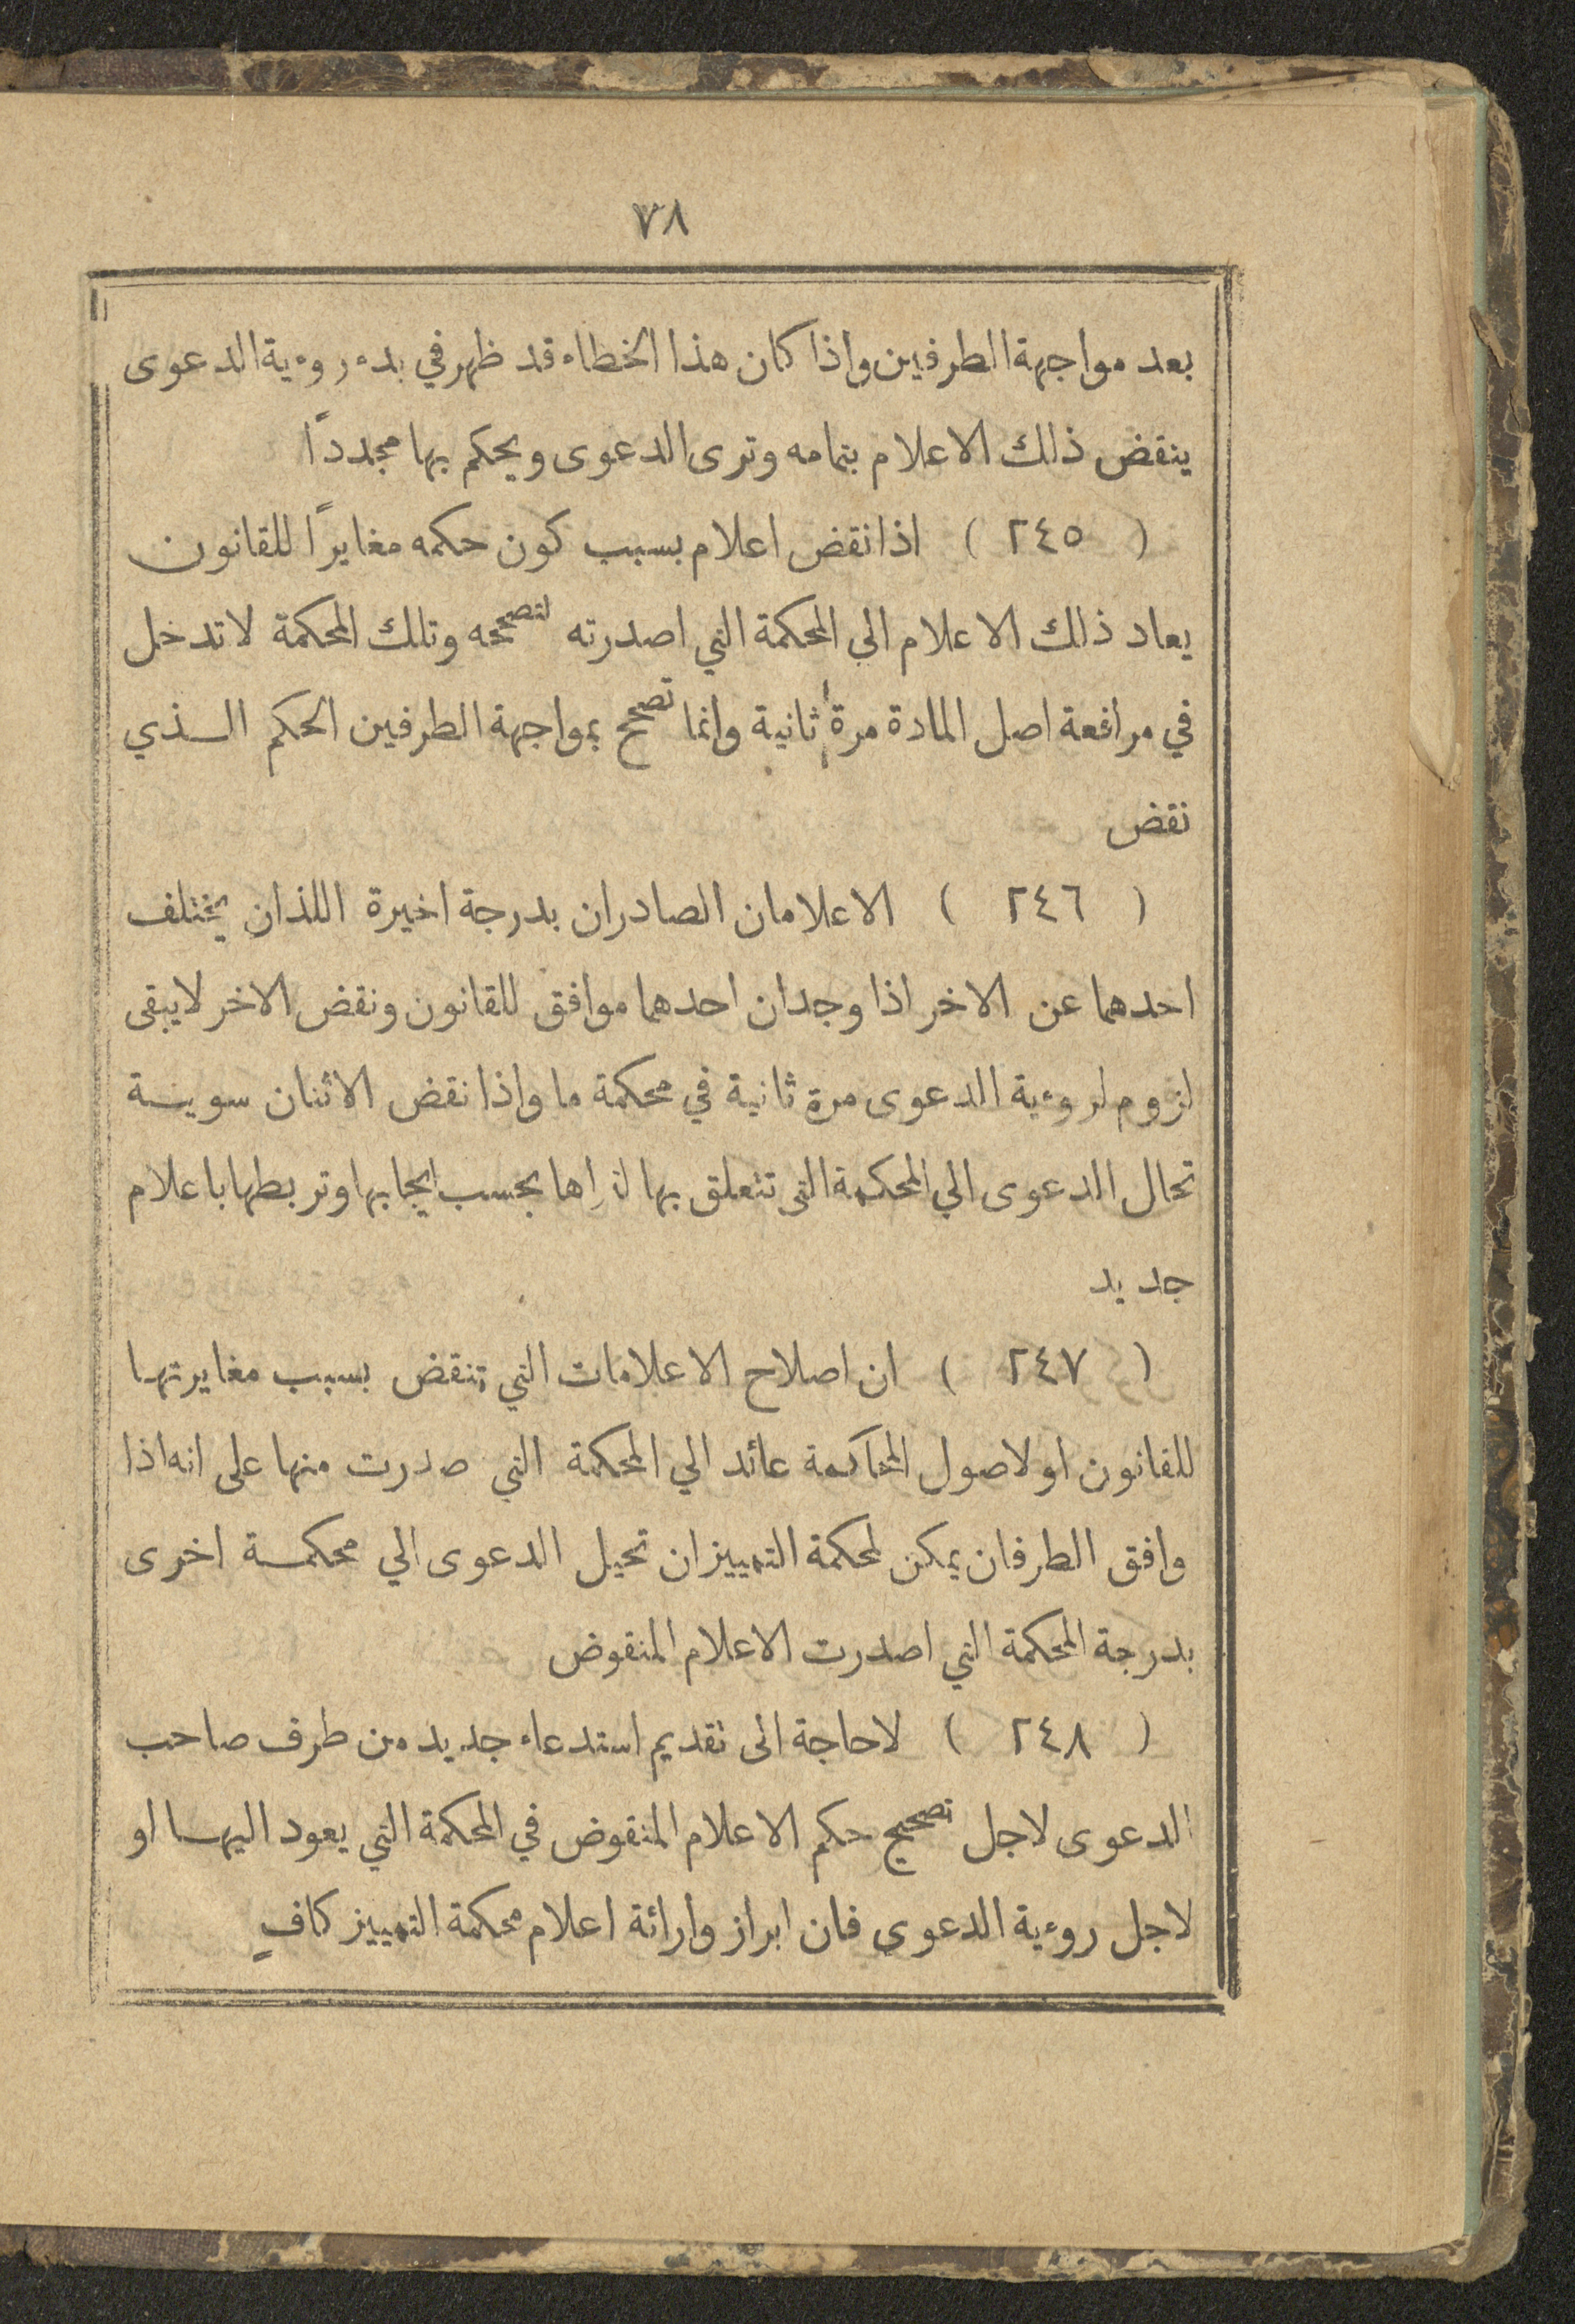 ٧٨
بعد مواجهة الطرفين واذا كان هذا الخطاء قد ظهر في بدء روءية الدعوى
ينقض ذلك الاعلام بتمامه وترى الدعوى ويحكم بها مجدداً
( ٢٤٥ ) اذا نقض اعلام بسبب كون حكمه مغايراً للقانون
يعاد ذلك الاعلام الى المحكمة التي اصدرته لتصححه وتلك المحكمة لا تدخل
في مرافعة اصل المادة مرة ثانية وانما تصحح بمواجهة الطرفين الحكم الذي
نقض
( ٢٤٦ ) الاعلامان الصادران بدرجة اخيرة اللذان يختلف
احدهما عن الاخر اذا وجد ان احدهما موافق للقانون ونقض الاخر لا يبقى
لزوم لروءية الدعوى مرة ثانية في محكمة ما واذا نقض الاثنان سوية
تحال الدعوى الي المحكمة التي تتعلق بها لتراها بحسب ايجابها وتربطها باعلام
جديد
( ٢٤٧ ) ان اصلاح الاعلامات التي تنقض بسبب مغايرتها
للقانون او لاصول المحاكمة عائد الي المحكمة التي صدرت منها على انه اذا
وافق الطرفان يمكن لمحكمة التمييز ان تحيل الدعوى الي محكمة اخرى
بدرجة المحكمة التي اصدرت الاعلام المنقوض
( ٢٤٨ ) لا حاجة الى تقديم استدعاء جديد من طرف صاحب
الدعوى لاجل تصحيح حكم الاعلام المنقوض في المحكمة التي يعود اليها او
لاجل روءية الدعوى فان ابراز وارائة اعلام محكمة التمييز كافٍ